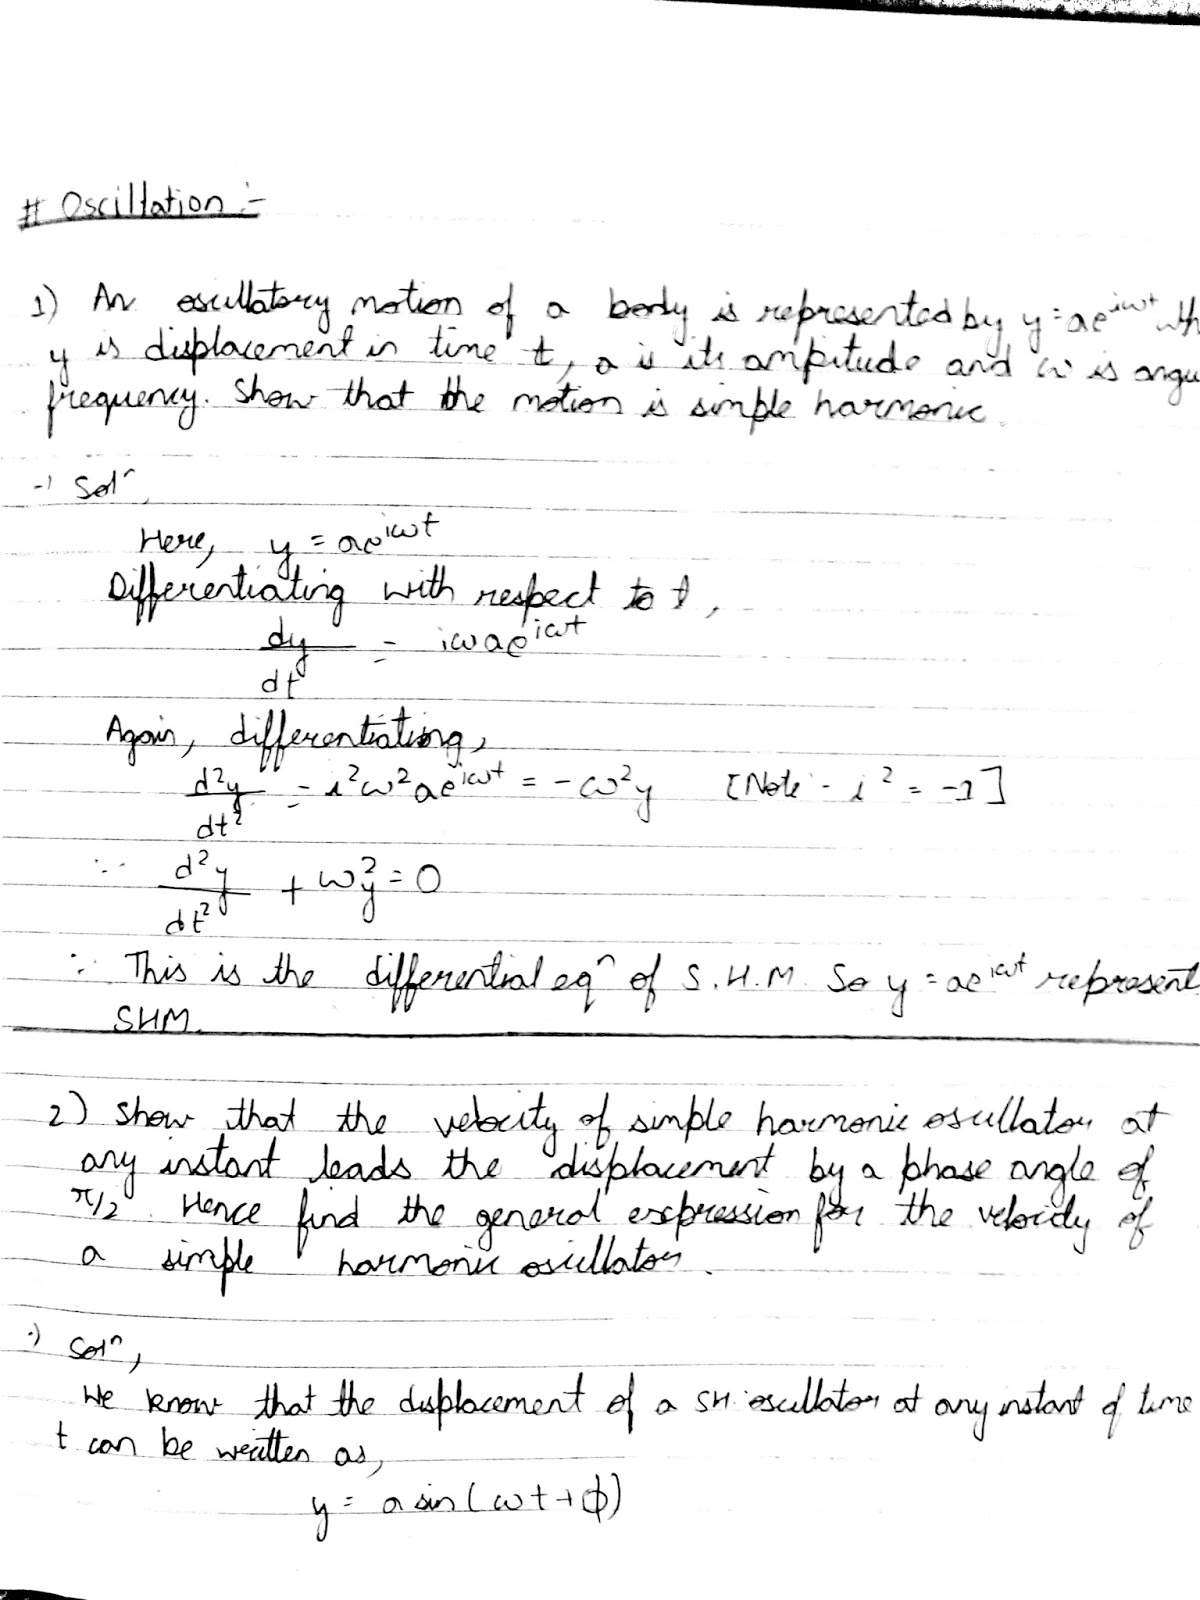 # Oscillation :-
1) An oscillatory motion of a body is represented by y = ae^iωt wh
y is displacement in time t, a is its amplitude and ω is angu
frequency. Show that the motion is simple harmonic.
→ Solⁿ,
Here, y = ae^iωt
Differentiating with respect to t,
dy/dt = iωae^iωt
Again, differentiating,
d²y/dt² = i²ω²ae^iωt = -ω²y [Note - i² = -1]
∴ d²y/dt² + ω²y = 0
∵ This is the differential eqⁿ of S.H.M. So y = ae^iωt represent
SHM.
2) Show that the velocity of simple harmonic oscillator at
any instant leads the displacement by a phase angle of
π/2. Hence find the general expression for the velocity of
a simple harmonic oscillator.
→ Solⁿ,
We know that the displacement of a SH oscillator at any instant of time
t can be written as,
y = a sin(ωt + ϕ)